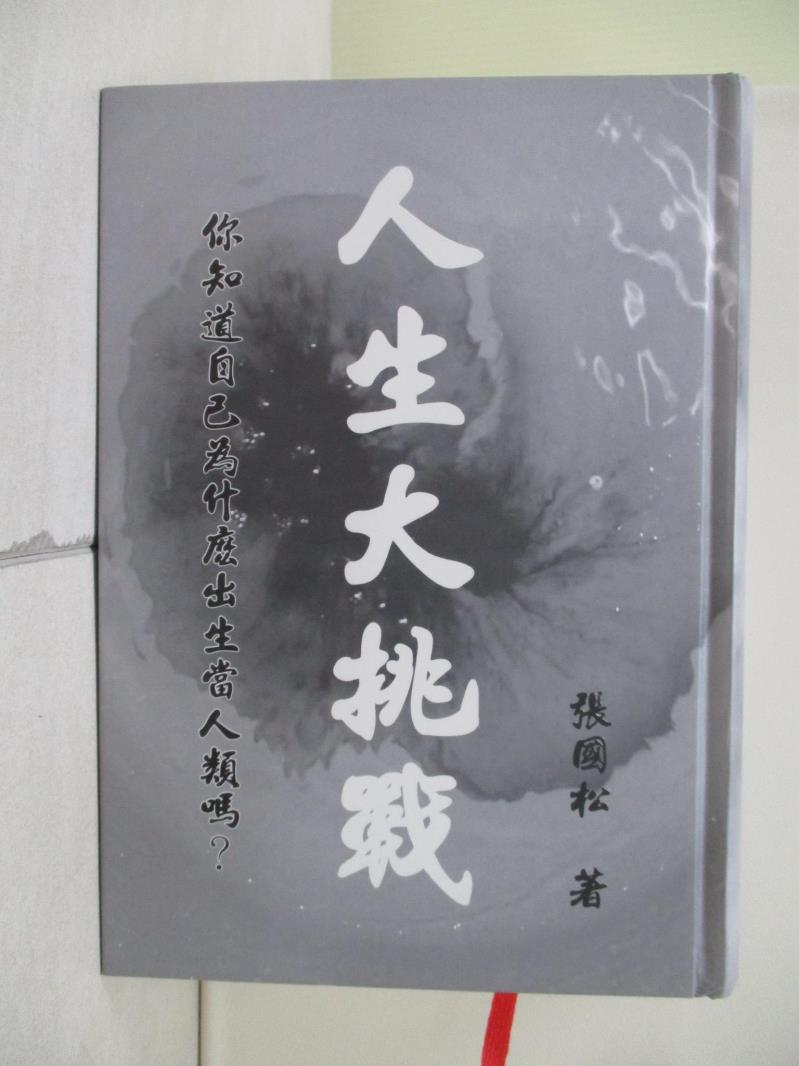 張國松 著
人生大挑戰
你知道自己為什麼出生當人類嗎?